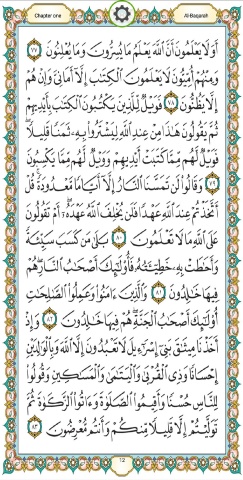 Chapter one
Al-Baqarah
أَوَلَا يَعْلَمُونَ أَنَّ اللَّهَ يَعْلَمُ مَا يُسِرُّونَ وَمَا يُعْلِنُونَ ﴿٧٧﴾
وَمِنْهُمْ أُمِّيُّونَ لَا يَعْلَمُونَ الْكِتَابَ إِلَّا أَمَانِيَّ وَإِنْ هُمْ
إِلَّا يَظُنُّونَ ﴿٧٨﴾ فَوَيْلٌ لِلَّذِينَ يَكْتُبُونَ الْكِتَابَ بِأَيْدِيهِمْ
ثُمَّ يَقُولُونَ هَٰذَا مِنْ عِنْدِ اللَّهِ لِيَشْتَرُوا بِهِ ثَمَنًا قَلِيلًا ۖ
فَوَيْلٌ لَهُمْ مِمَّا كَتَبَتْ أَيْدِيهِمْ وَوَيْلٌ لَهُمْ مِمَّا يَكْسِبُونَ
﴿٧٩﴾ وَقَالُوا لَنْ تَمَسَّنَا النَّارُ إِلَّا أَيَّامًا مَعْدُودَةً ۚ قُلْ
أَتَّخَذْتُمْ عِنْدَ اللَّهِ عَهْدًا فَلَنْ يُخْلِفَ اللَّهُ عَهْدَهُ ۖ أَمْ تَقُولُونَ
عَلَى اللَّهِ مَا لَا تَعْلَمُونَ ﴿٨٠﴾ بَلَىٰ مَنْ كَسَبَ سَيِّئَةً
وَأَحَاطَتْ بِهِ خَطِيئَتُهُ فَأُولَٰئِكَ أَصْحَابُ النَّارِ ۖ هُمْ
فِيهَا خَالِدُونَ ﴿٨١﴾ وَالَّذِينَ آمَنُوا وَعَمِلُوا الصَّالِحَاتِ
أُولَٰئِكَ أَصْحَابُ الْجَنَّةِ ۖ هُمْ فِيهَا خَالِدُونَ ﴿٨٢﴾ وَإِذْ
أَخَذْنَا مِيثَاقَ بَنِي إِسْرَائِيلَ لَا تَعْبُدُونَ إِلَّا اللَّهَ وَبِالْوَالِدَيْنِ
إِحْسَانًا وَذِي الْقُرْبَىٰ وَالْيَتَامَىٰ وَالْمَسَاكِينِ وَقُولُوا
لِلنَّاسِ حُسْنًا وَأَقِيمُوا الصَّلَاةَ وَآتُوا الزَّكَاةَ ثُمَّ
تَوَلَّيْتُمْ إِلَّا قَلِيلًا مِنْكُمْ وَأَنْتُمْ مُعْرِضُونَ ﴿٨٣﴾
12